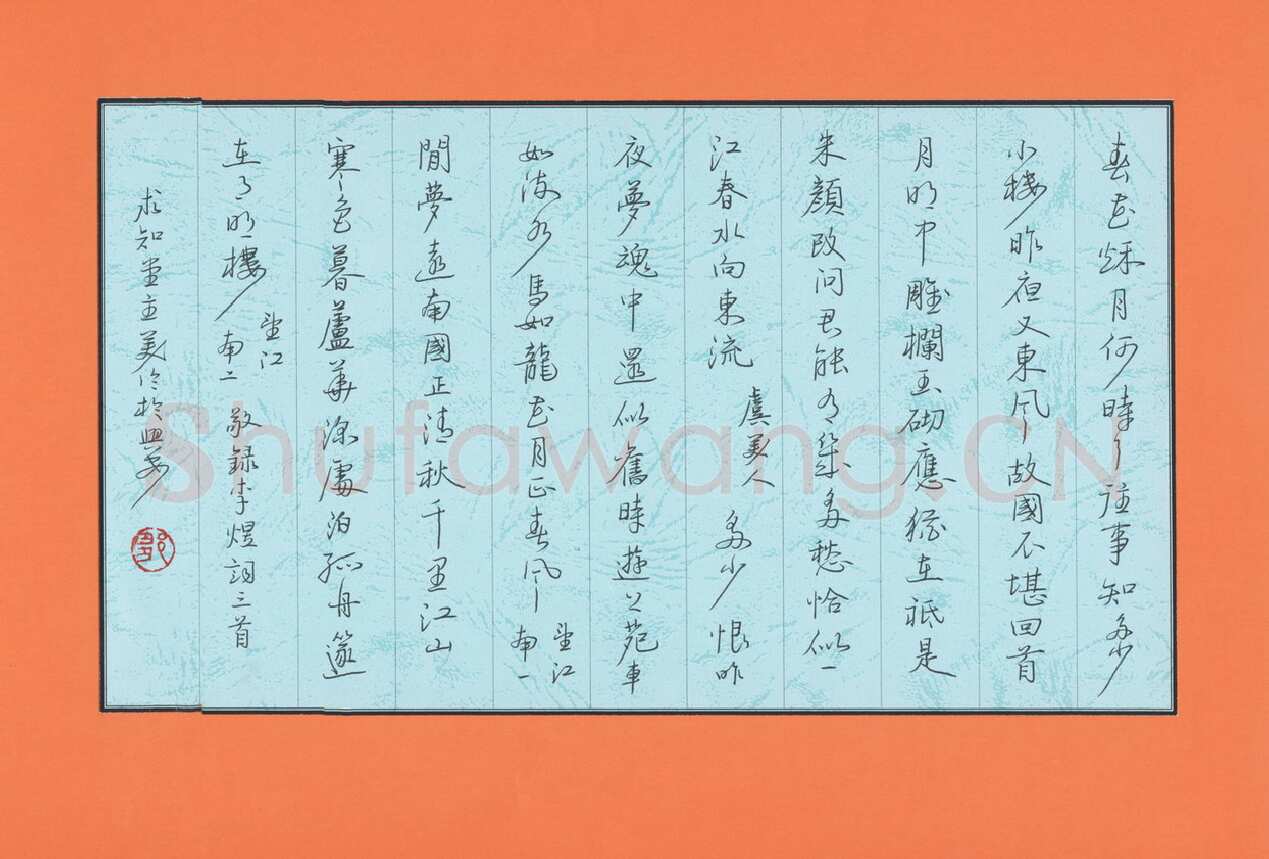 春花秋月何時了往事知多少
小樓昨夜又東風故國不堪回首
月明中雕欄玉砌應猶在祇是
朱顏改问君能有幾多愁恰似一
江春水向東流 虞美人 多少恨昨
夜夢魂中還似舊時遊上苑車
如流水馬如龍花月正春风 望江南一
閒夢遠南國正清秋千里江山
寒色暮蘆華深處泊孤舟篴
在月明樓 望江南二 敬録李煜詞三首
求知堂主美
Shufawang.CN